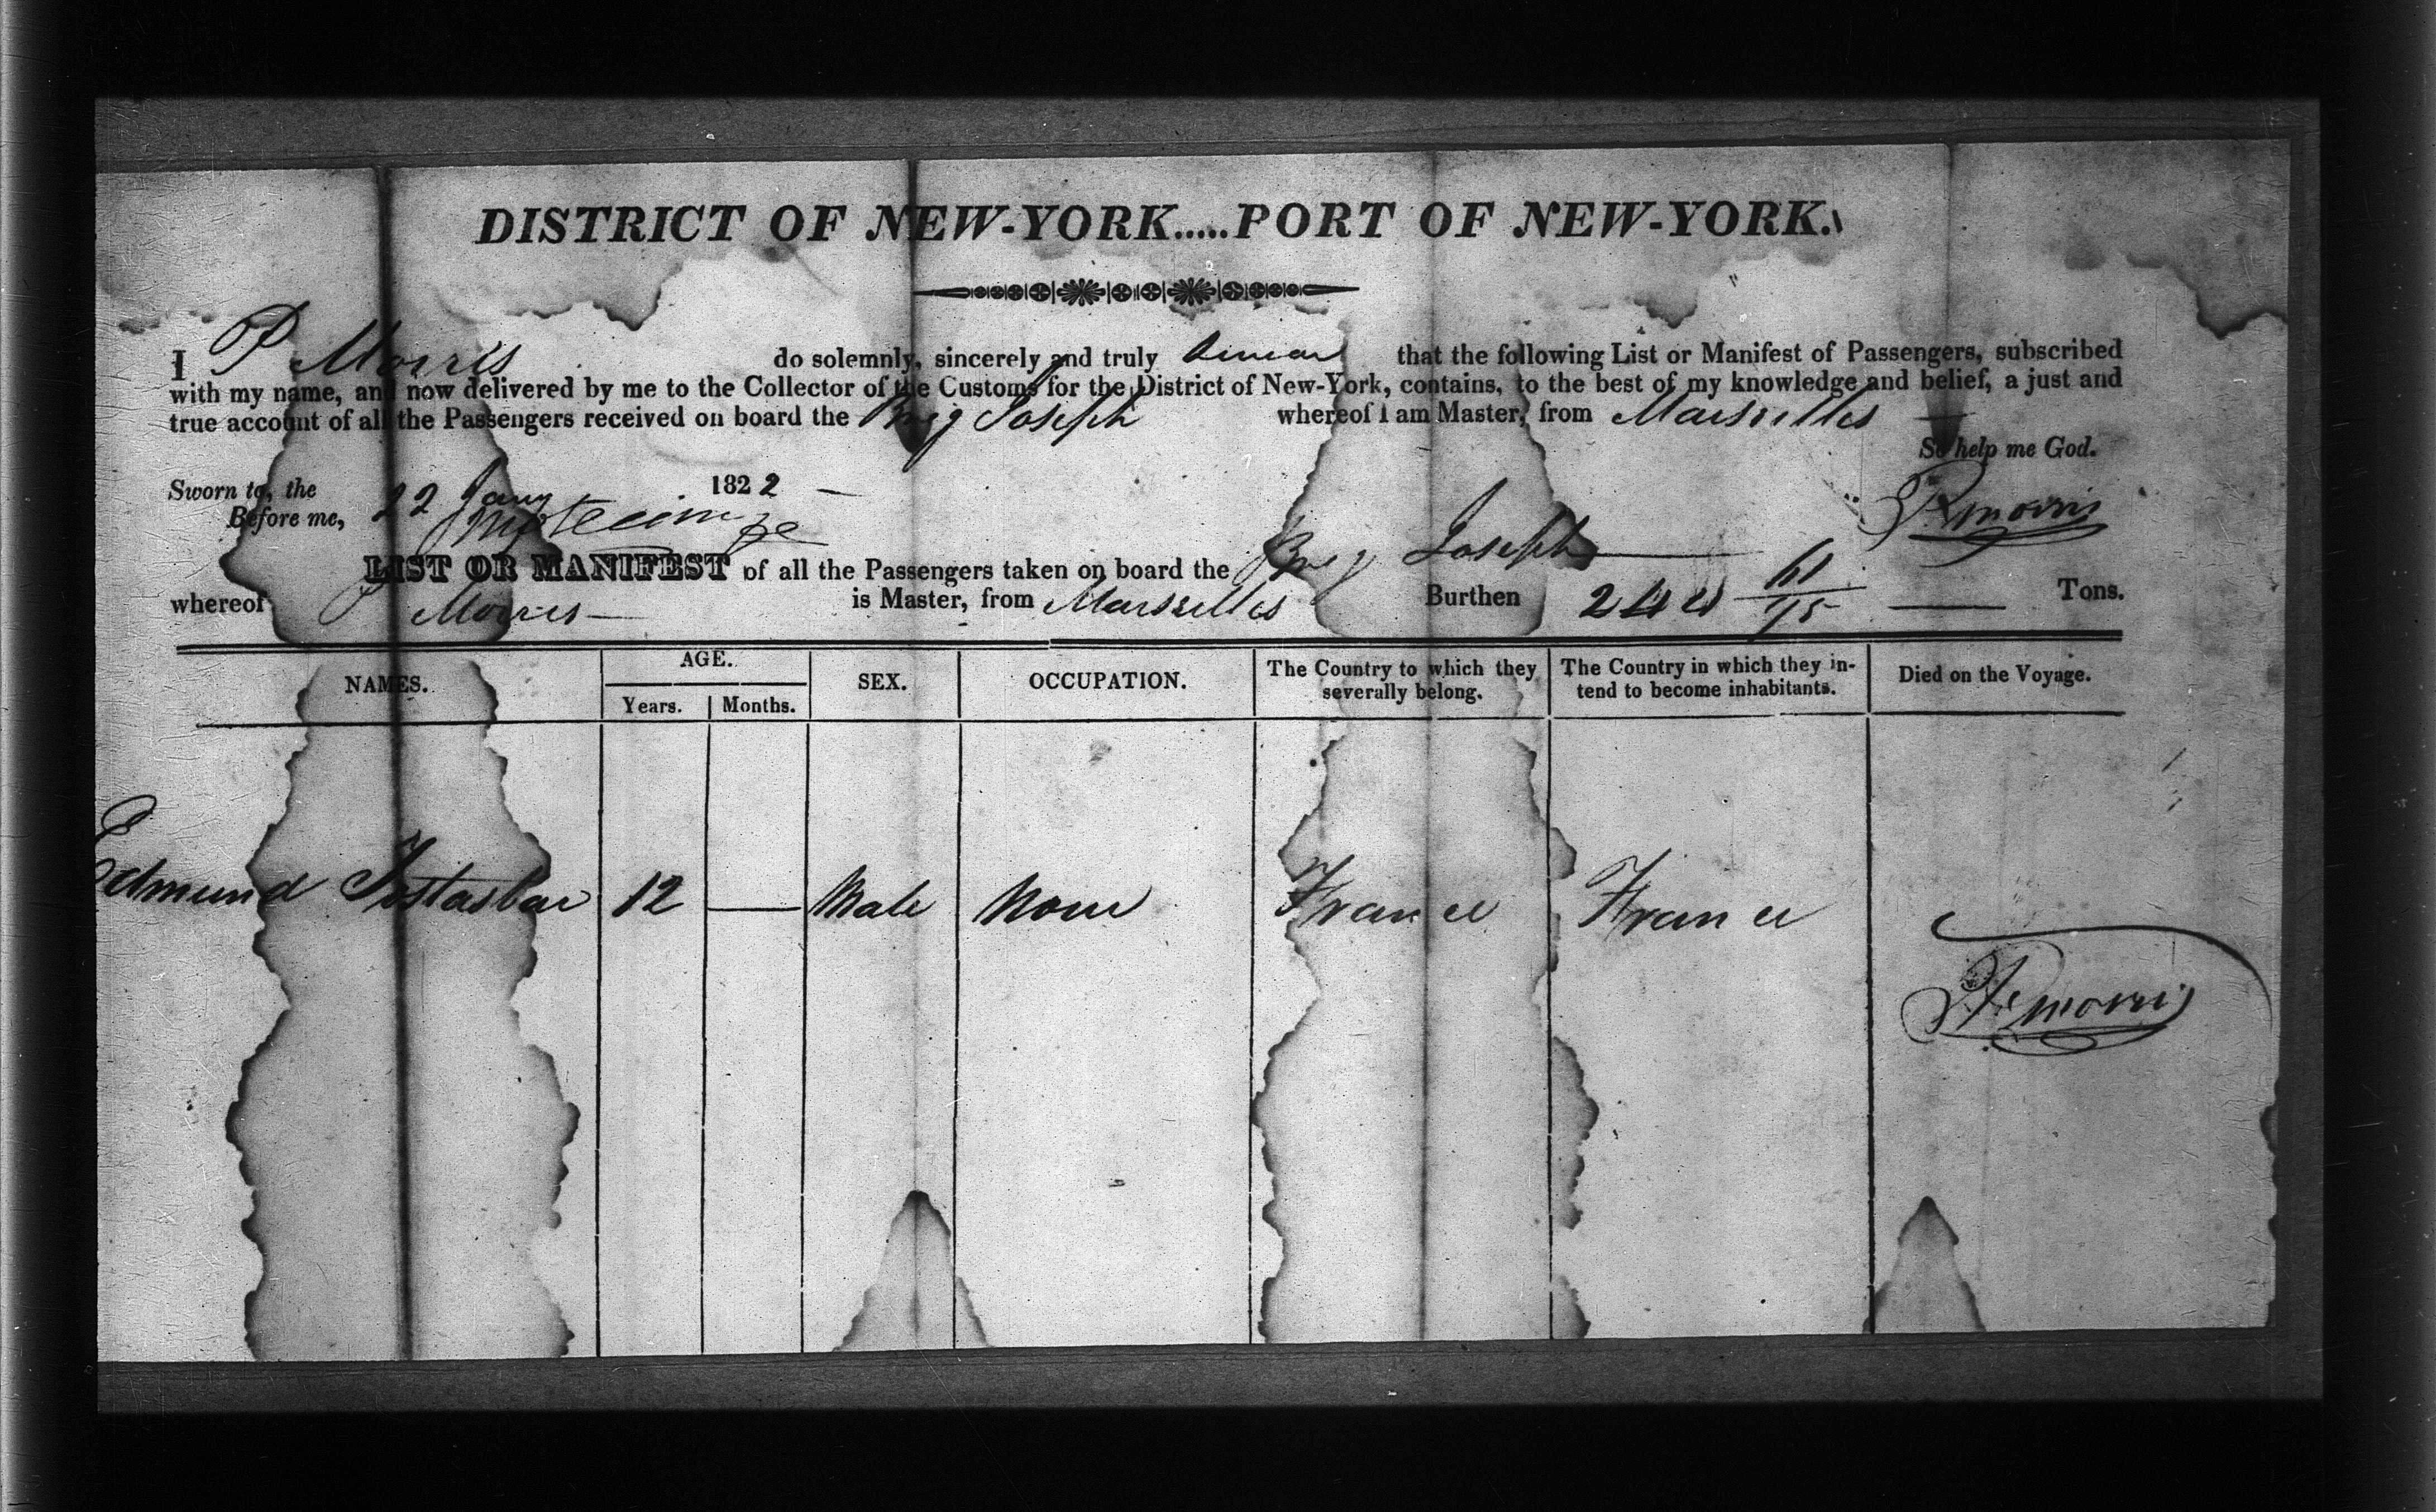 DISTRICT OF NEW-YORK.....PORT OF NEW-YORK.
I P Morris do solemnly, sincerely and truly swear that the following List or Manifest of Passengers, subscribed
with my name, and now delivered by me to the Collector of the Customs for the District of New-York, contains, to the best of my knowledge and belief, a just and
true account of all the Passengers received on board the Brig Joseph whereof I am Master, from Marseilles
So help me God.
Sworn to, the 22 Jany 1822
Before me, P Morris
LIST OR MANIFEST of all the Passengers taken on board the Brig Joseph
whereof P Morris is Master, from Marseilles Burthen Tons.
NAMES. AGE. SEX. OCCUPATION. The Country to which they severally belong. The Country in which they intend to become inhabitants. Died on the Voyage.
Years. Months.
Edmund 12 — Male None France France
P Morris